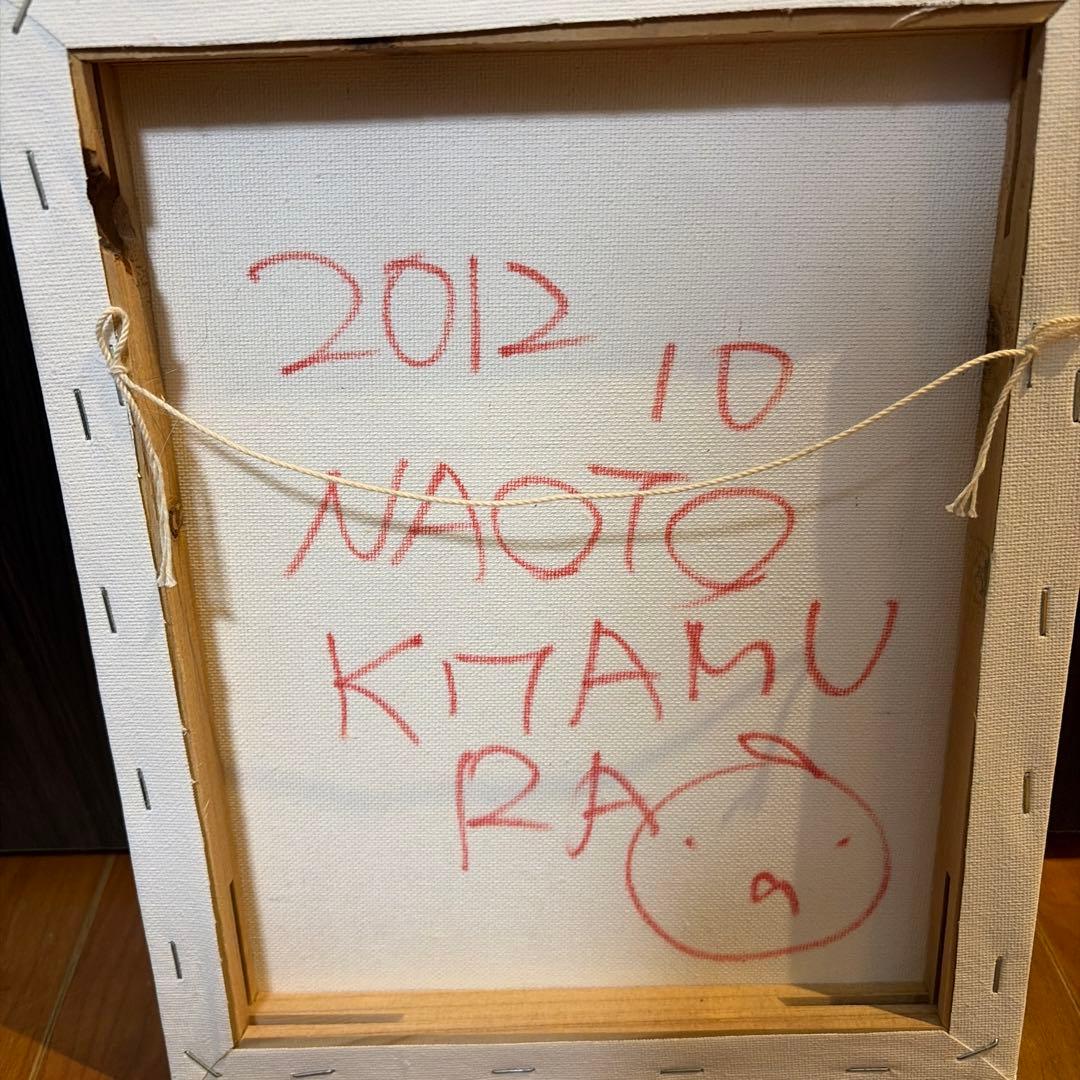 2012
10
NAOTO
KITAMU
RA